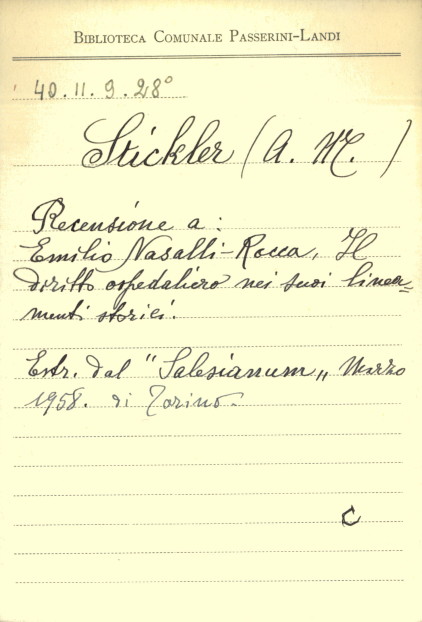 Biblioteca Comunale Passerini-Landi
40.11.9.28°
Stickler (A. M.)
Recensione a:
Emilio Nasalli-Rocca, Il
diritto ospedaliero nei suoi linea=
menti storici.
Estr. dal "Salesianum„ Marzo
1958. di Torino.
C